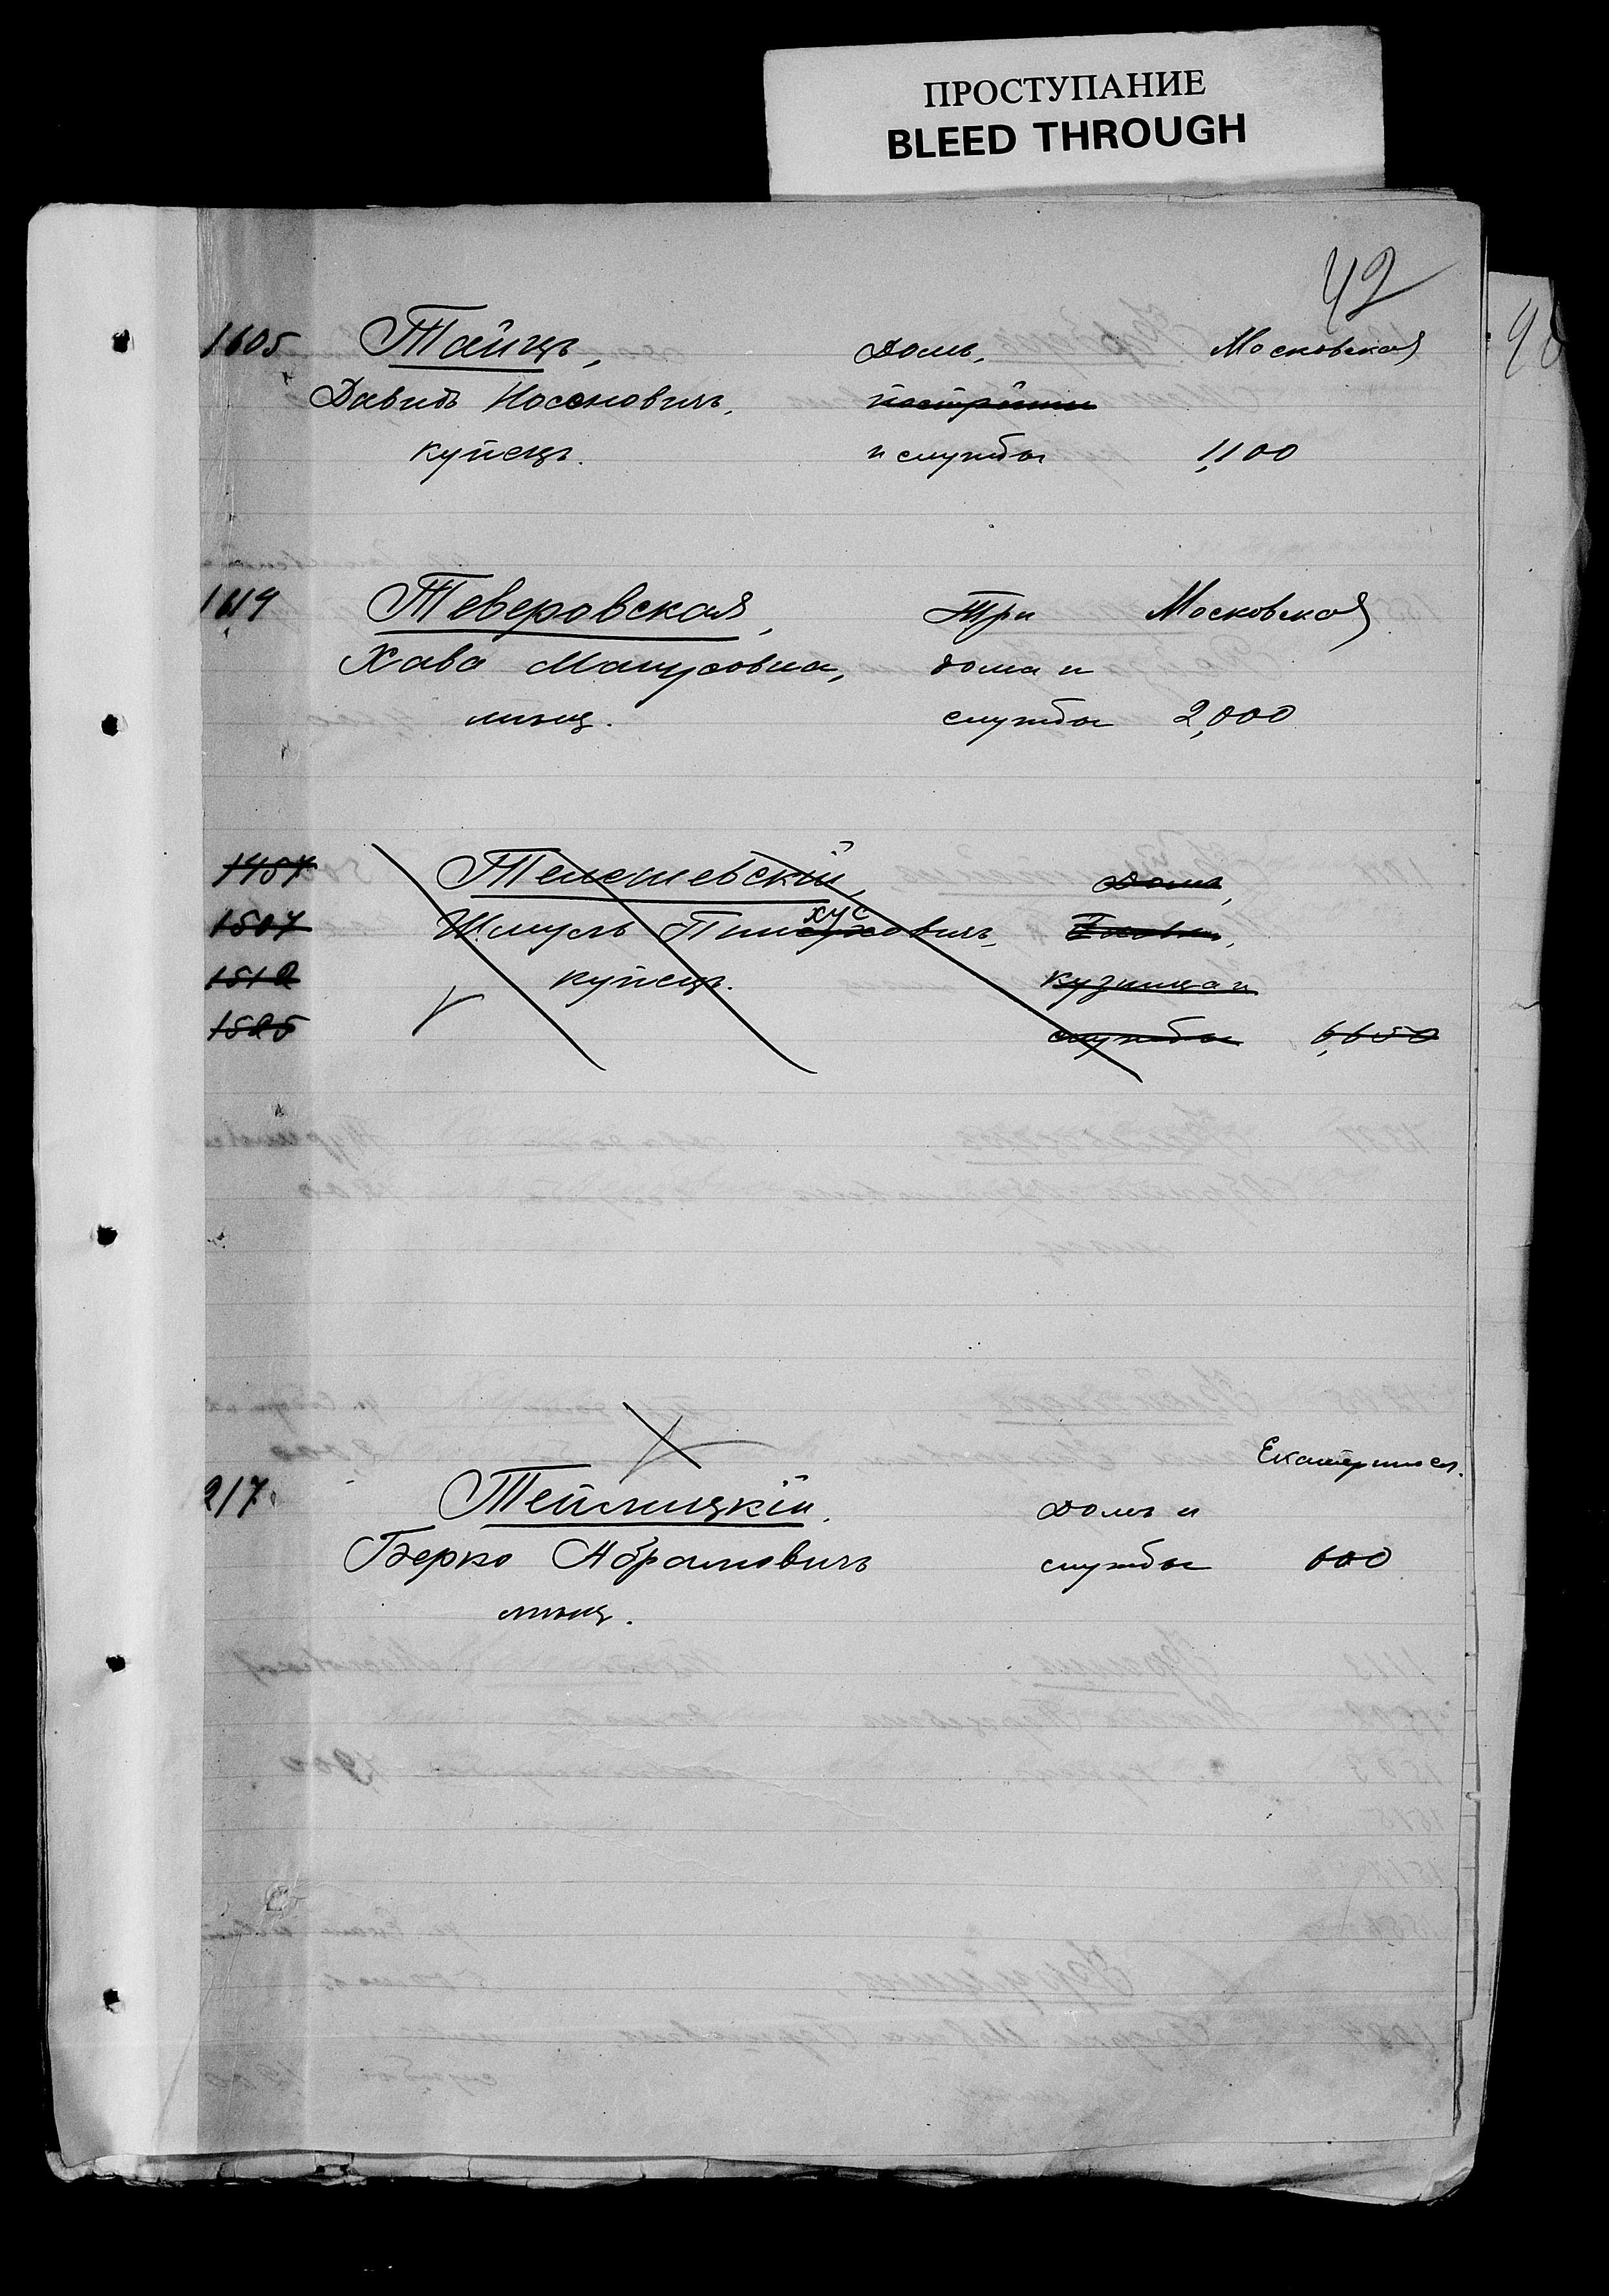 ПРОСТУПАНИЕ
BLEED THROUGH
42
1605 Тайцъ, Домъ, Московская
Давидъ Носоновичъ, постройки
купецъ. и службы 1,100
1619 Теверовская, Три Московская
Хава Манусовна, дома и
мѣщ. службы 2,000
1457 Телешевскій, Дома,
1507 Шмуль Пинхусовичъ,
1512 купецъ. кузница и
1525 службы 6,650
Екатеринос.
217 Теплицкій, Домъ и
Берко Абрамовичъ службы 600
мѣщ.